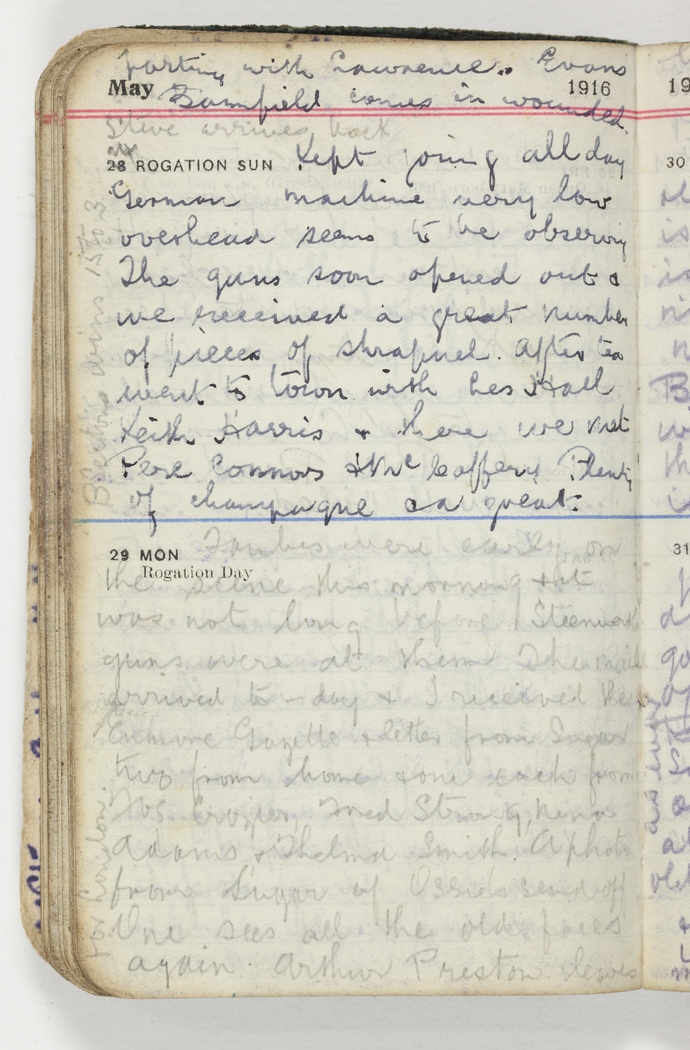 parting with Lawrence. Evans
May 1916
Bamfield comes in wounded.
Steve arrives back
28 ROGATION SUN Kept going all day
German machine very low
overhead seems to be observing
The guns soon opened out &
we received a great number
of pieces of shrapnel. After tea
went to town with Les Hall
Keith Harris & there we met
Perc Connors & McCafferty Plenty
of champagne
29 MON were early on
Rogation Day
the scene this morning & it
was not long before Steenwerk
guns were at them. The mail
arrived to-day & I received the
Enmore Gazette & letter from Sugar
two from home & one each from
Fred Strong, Nena
Adams & Thelma Smith. A photo
from Sugar of Ossie's send off
One sees all the old faces
again. Arthur Preston leaves
for London.
15 to 3
30
31